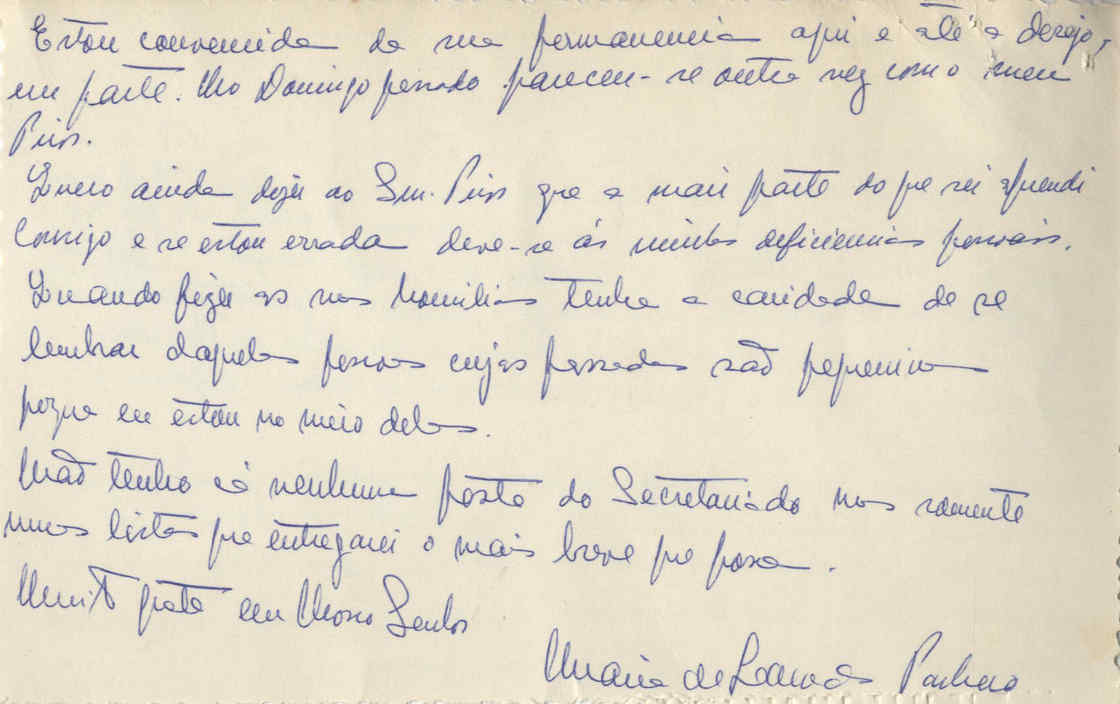 Estou convencida da sua permanencia aqui e até a desejo,
em parte. No Domingo passado pareceu-se outra vez com o meu
Prior.
Quero ainda dizer ao Snr. Prior que a mais parte do que sei aprendi
consigo e se estou errada deve-se ás minhas deficiencias pessoais.
Quando fizer as suas homilias tenha a caridade de se
lembrar daquelas pessoas cujas passadas são pequeninas
porque eu estou no meio delas.
Não tenho cá nenhuma pasta do Secretariado mas somente
umas listas que entregarei o mais breve que possa.
Muito grata em Nosso Senhor
Maria de Lourdes Pacheco